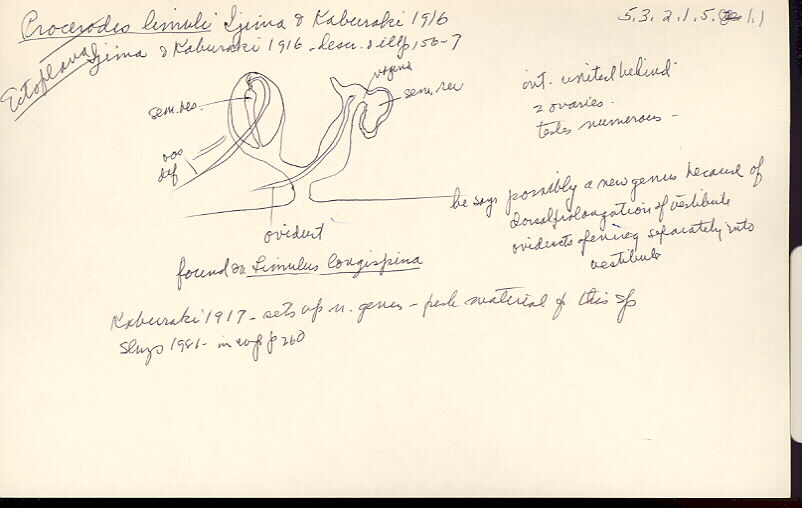 Procerodes limuli Ijima & Kaburaki 1916
5.3.2.1.5. 1.1
Ectoplana
Ijima & Kaburaki 1916 - descr. & ill p. 156-7
vagina
sem. ves.
sem. rec
int. united behind
2 ovaries
testes numerous -
vas
def
he says possibly a new genus because of
dorsal prolongation of vestibule
oviducts opening separately into
vestibule
oviduct
found on Limulus longispina
Kaburaki 1917 - sets up n. genus - material of this sp
Sluys 1981 - p 260